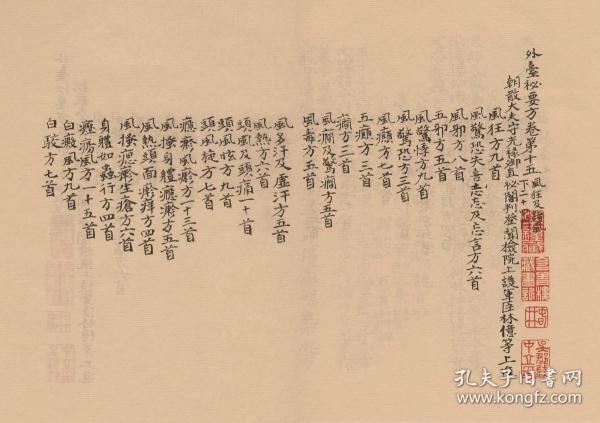 外臺祕要方卷第十五 風狂及諸風下二十四門
朝散大夫守光祿卿直祕閣判登聞檢院上護軍臣林億等上進
風狂方九首
風驚恐失志喜忘及忘言方六首
風邪方八首
五邪方五首
風驚悸方九首
風驚恐方三首
五癲方三首
癎方三首
風癎及驚癎方五首
風毒方五首
風多汗及虛汗方五首
風熱方六首
頭風及頭痛一十首
頭風眩方九首
頭風旋方七首
癮疹風疹方一十三首
風搔身體癮疹方五首
風熱頭面疹痒方四首
風搔癮疹生瘡方六首
身體如蟲行方四首
癧瘍風方一十五首
白癜風方九首
白駮方七首
孔夫子旧书网
www.kongfz.com